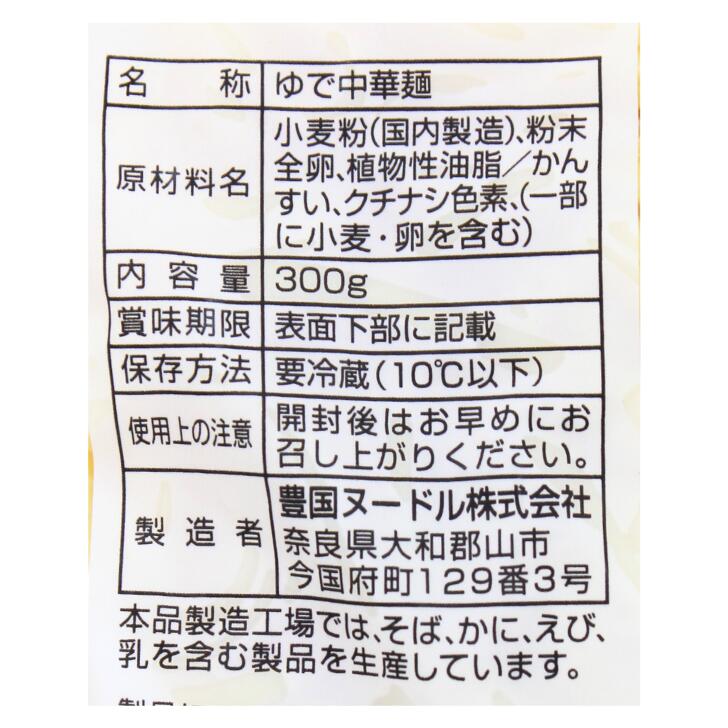 名称 ゆで中華麺
原材料名 小麦粉(国内製造)、粉末
全卵、植物性油脂/かん
すい、クチナシ色素、(一部
に小麦・卵を含む)
内容量 300g
賞味期限 表面下部に記載
保存方法 要冷蔵(10℃以下)
使用上の注意 開封後はお早めにお
召し上がりください。
製造者 豊国ヌードル株式会社
奈良県大和郡山市
今国府町129番3号
本品製造工場では、そば、かに、えび、
乳を含む製品を生産しています。